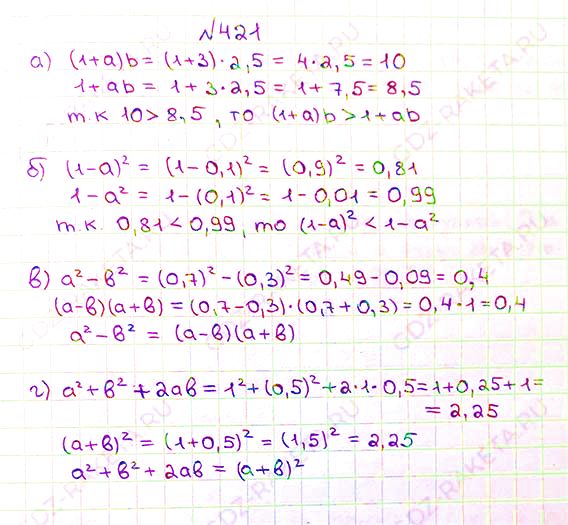 №421
а) (1+a)b = (1+3)·2,5 = 4·2,5 = 10
1+ab = 1+3·2,5 = 1+7,5 = 8,5
т.к 10 > 8,5 , то (1+a)b > 1+ab
б) (1-a)² = (1-0,1)² = (0,9)² = 0,81
1-a² = 1-(0,1)² = 1-0,01 = 0,99
т.к. 0,81 < 0,99, то (1-a)² < 1-a²
в) a²-в² = (0,7)²-(0,3)² = 0,49-0,09 = 0,4
(a-в)(a+в) = (0,7-0,3)·(0,7+0,3) = 0,4·1 = 0,4
a²-в² = (a-в)(a+в)
г) a²+в²+2aв = 1²+(0,5)²+2·1·0,5 = 1+0,25+1 =
= 2,25
(a+в)² = (1+0,5)² = (1,5)² = 2,25
a²+в²+2aв = (a+в)²
GDZ-RAKETA.RU